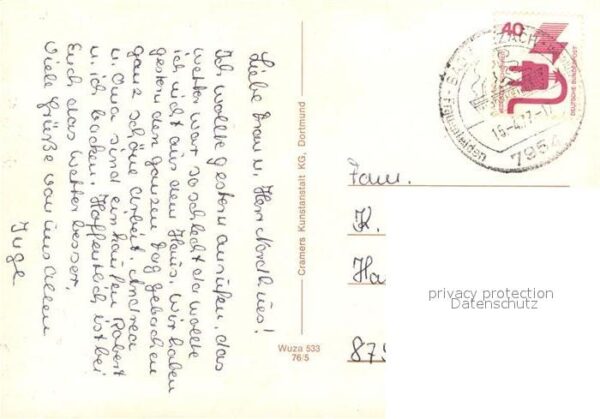 Liebe Frau u. Herr
Ich wollte gestern anrufen, das
Wetter war so schlecht da wollte
ich nicht aus dem Haus. Wir haben
gestern den ganzen Tag gebacken
ganz schöne Arbeit. Andrea
u. Oma sind ein haufen Robert
u. ich backen. Hoffentlich ist bei
Euch das Wetter besser.
Viele Grüße von uns allen
Inge
Cramers Kunstanstalt KG, Dortmund
Wuza 533
76/5
40
DEUTSCHE BUNDESPOST
Frauenleiden
7954
Fam.
K.
Ha
privacy protection
Datenschutz
879